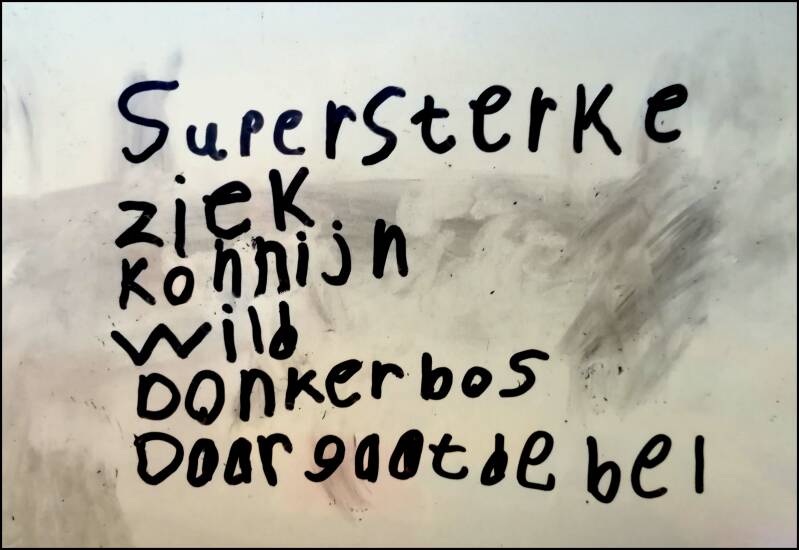 Supersterke
ziek
Konnijn
wild
Donkerbos
Daar gaat de bel